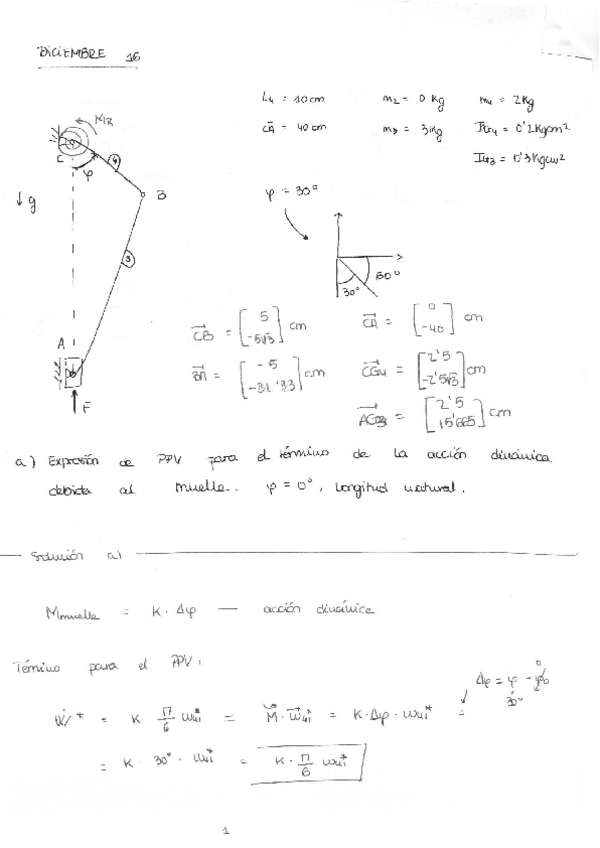 DICIEMBRE 16
L4 = 10cm m2 = 0 Kg m4 = 2Kg
CA = 40 cm m3 = 3Kg IG4 = 0'2Kgcm²
IG3 = 0'3Kgcm²
MR
C
φ
4
B
↓ g
3
A
F
φ = 30°
60°
30°
CB = [ 5 -5√3 ] cm CA = [ 0 -40 ] cm
BA = [ -5 -31'33 ] cm CG4 = [ 2'5 -2'5√3 ] cm
AG3 = [ 2'5 15'665 ] cm
a) Expresión de PPV para el término de la acción dinámica
debida al muelle. φ = 0°, longitud natural.
Solución a)
Mmuelle = K · Δφ — acción dinámica
Término para el PPV:
Δφ = φ - φ0
0
30°
Ẇ* = K π/6 ω41* = M · ω41* = K · Δφ · ω41* =
= K · 30° · ω41* = K · π/6 ω41*
1